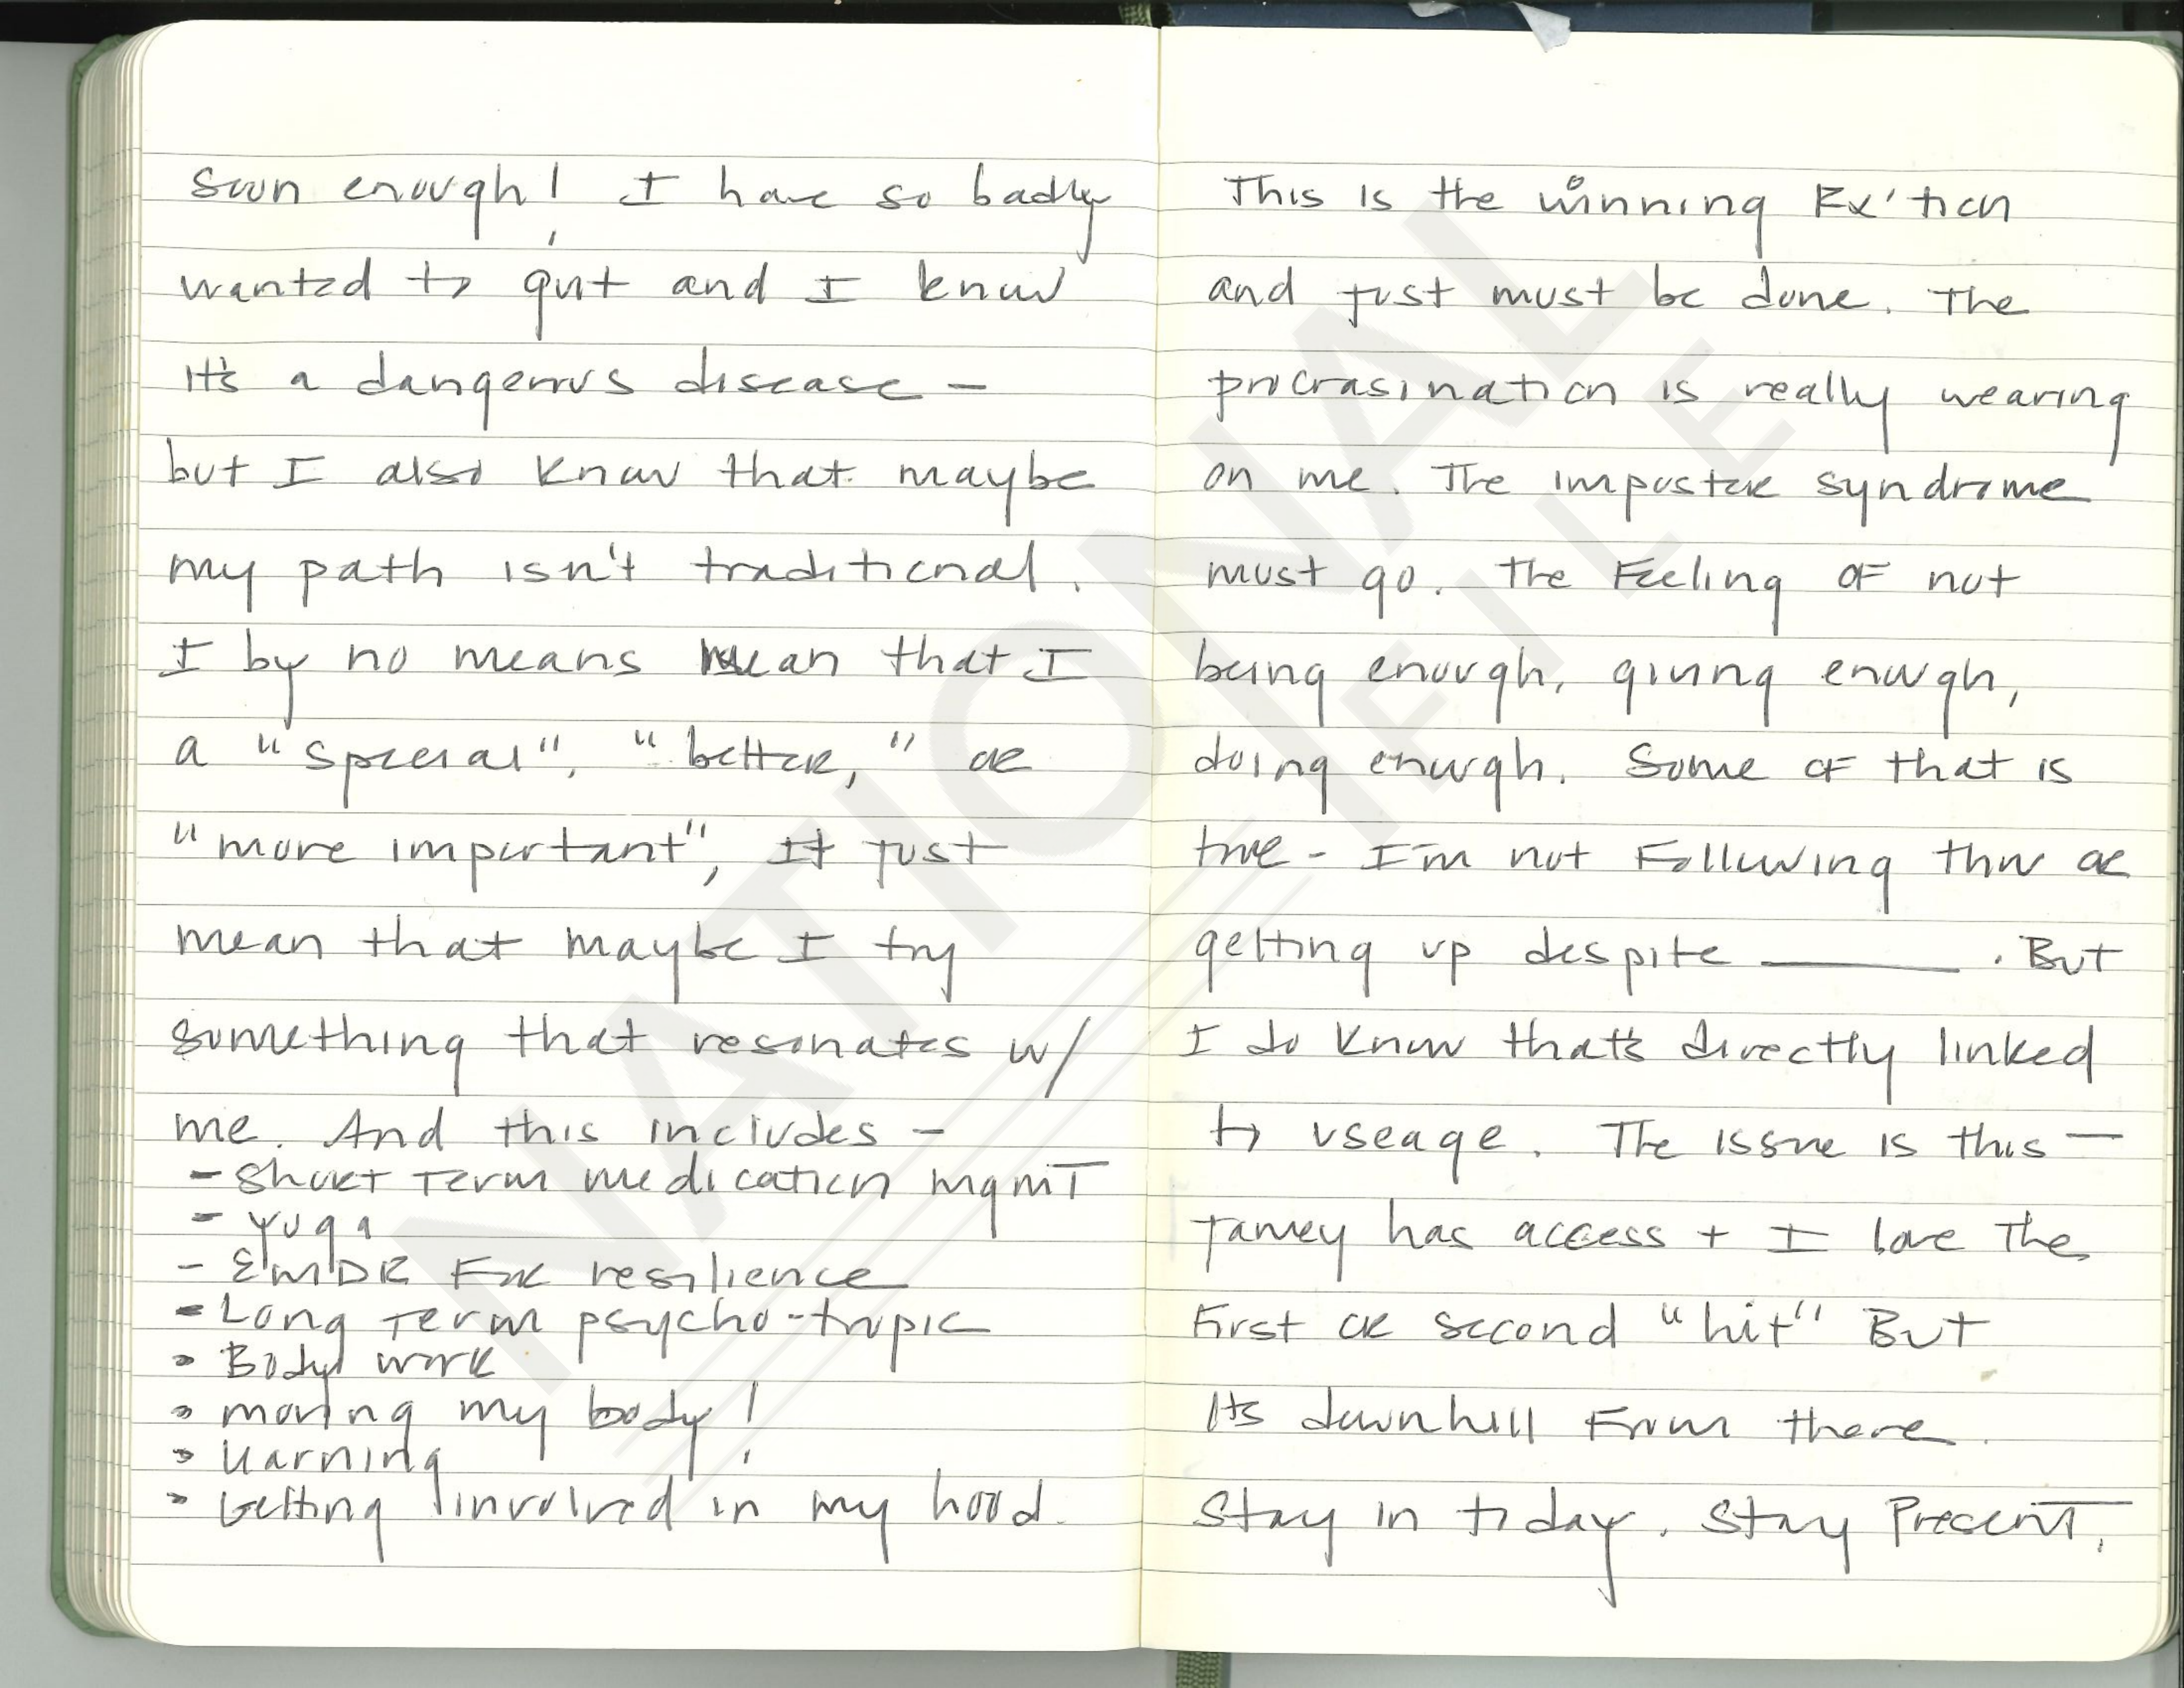 soon enough! I have so badly
wanted to quit and I know
it's a dangerous disease -
but I also know that maybe
my path isn't traditional.
I by no means mean that I
a "special", "better," or
"more important", It just
mean that maybe I try
something that resonates w/
me. And this includes -
- Short term medication mgmt
- Yoga
- EMDR For resilience
- Long Term psycho-tropic
- Body work
- moving my body!
- Learning
- Getting involved in my hood.
This is the winning Rx'tion
and just must be done. The
procrasination is really wearing
on me. The imposter syndrome
must go. The Feeling OF not
being enough, giving enough,
doing enough. Some OF that is
true - I'm not Following thru or
getting up despite ______. But
I do know that's directly linked
to useage. The issue is this -
has access + I love The
First or second "hit" But
Its downhill From there.
Stay in today. Stay Present.
NATIONAL
FILE